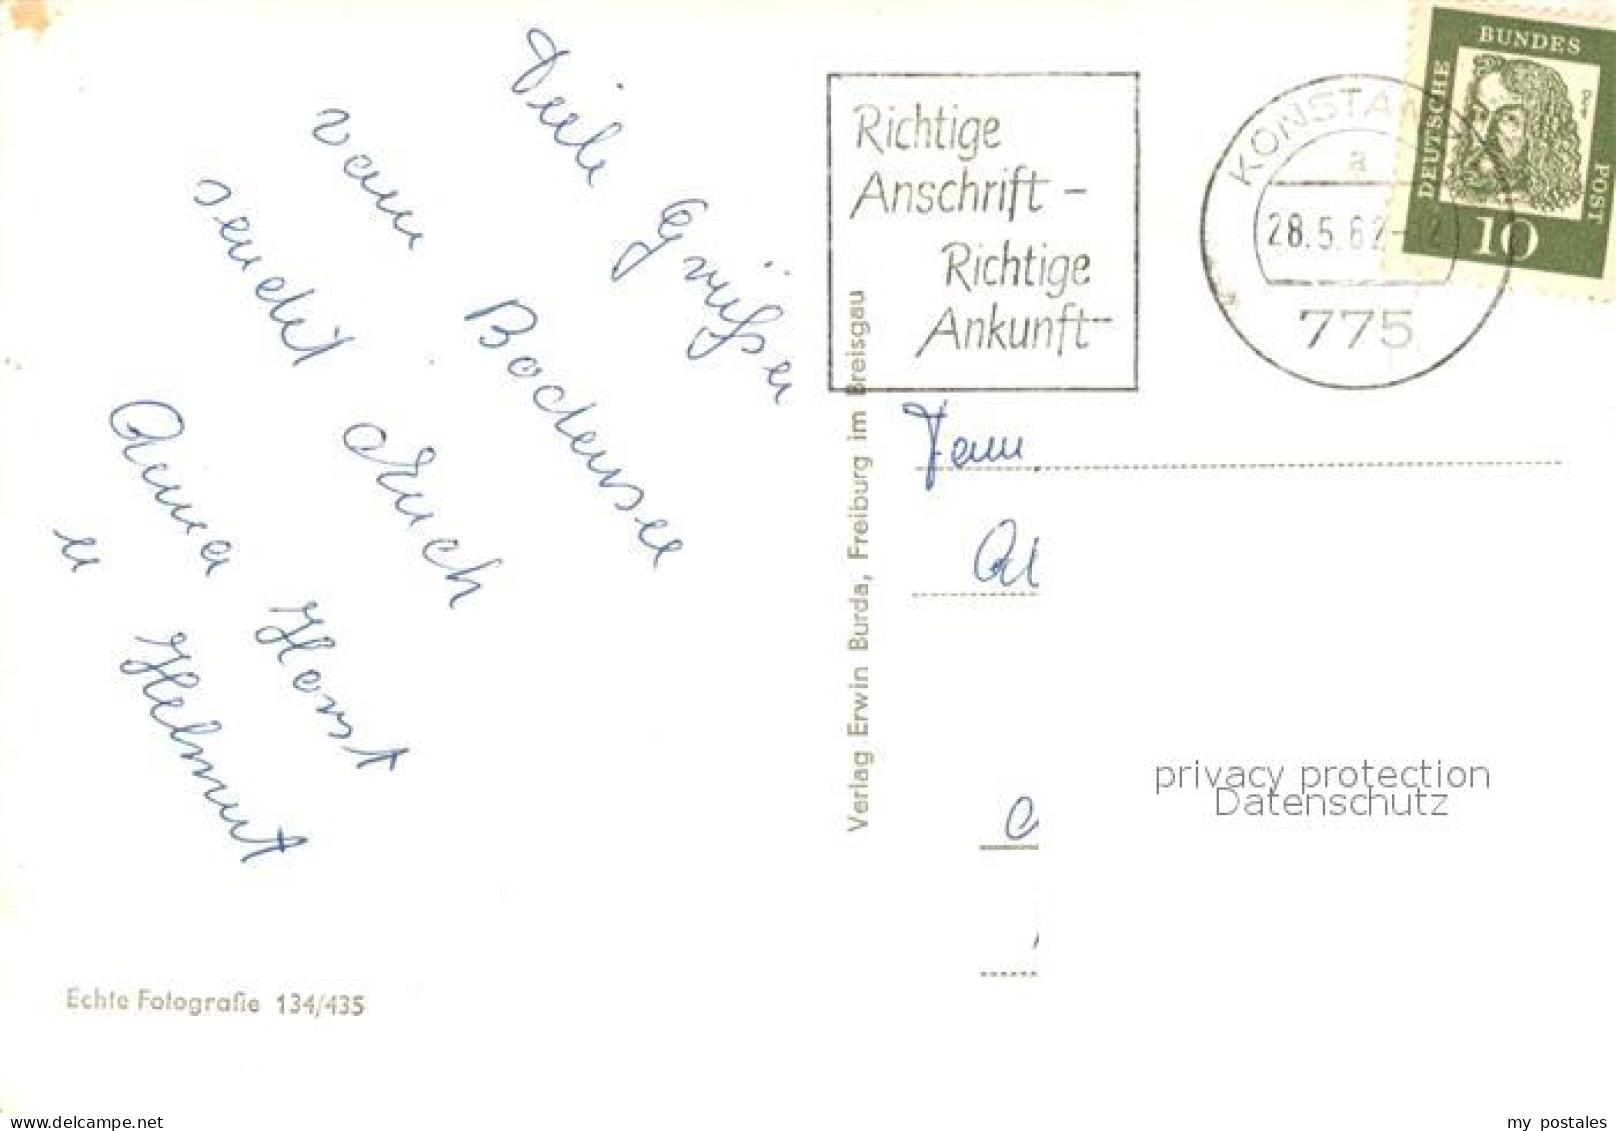 Viele Grüßen
vom Bodensee
sendet Euch
Anna Horst
u Helmut
Echte Fotografie 134/435
Verlag Erwin Burda, Freiburg im Breisgau
Richtige
Anschrift -
Richtige
Ankunft
KONSTANZ
a
28.5.62-12
775
DEUTSCHE BUNDES POST
10
Fam
privacy protection
Datenschutz
www.delcampe.net
my postales